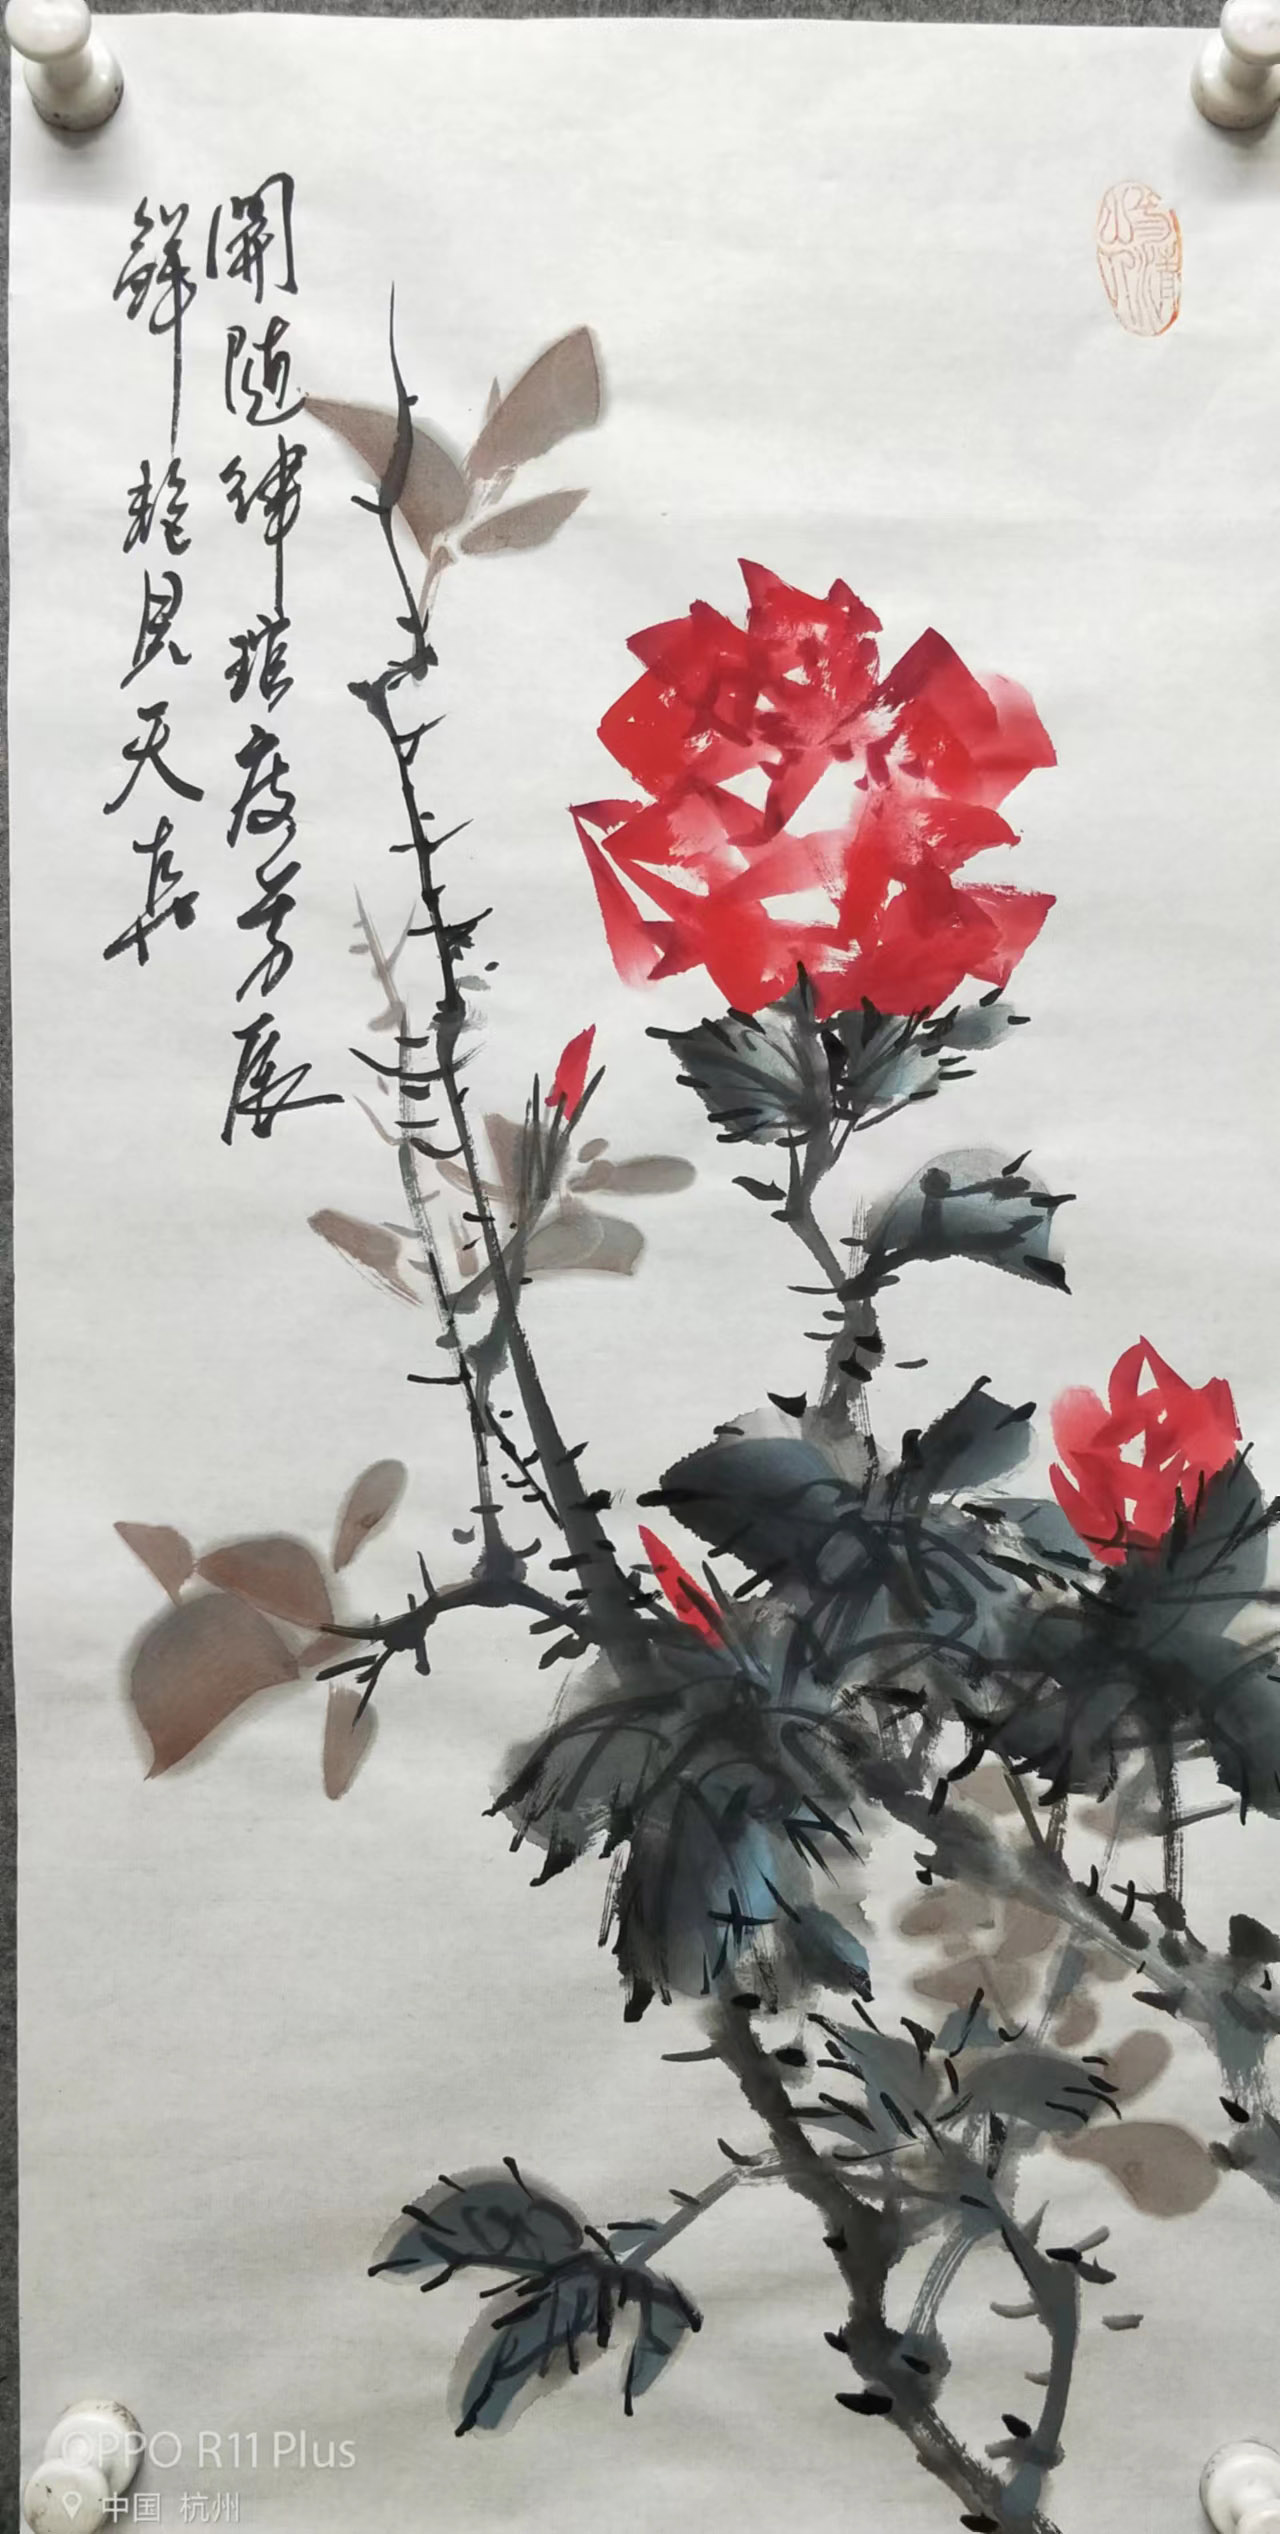 開隨律琯度芳辰
鮮艷見天真
OPPO R11 Plus
中国 杭州